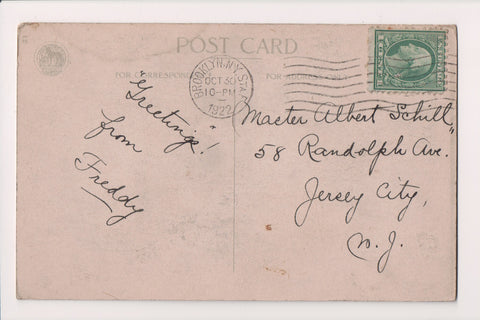 POST CARD
FOR CORRESPONDENCE
FOR ADDRESS ONLY
BROOKLYN, N.Y. STA.
OCT 30
10-PM
1922
"Greetings"!
from
Freddy
"Master Albert Schill"
58 Randolph Ave.
Jersey City,
N. J.